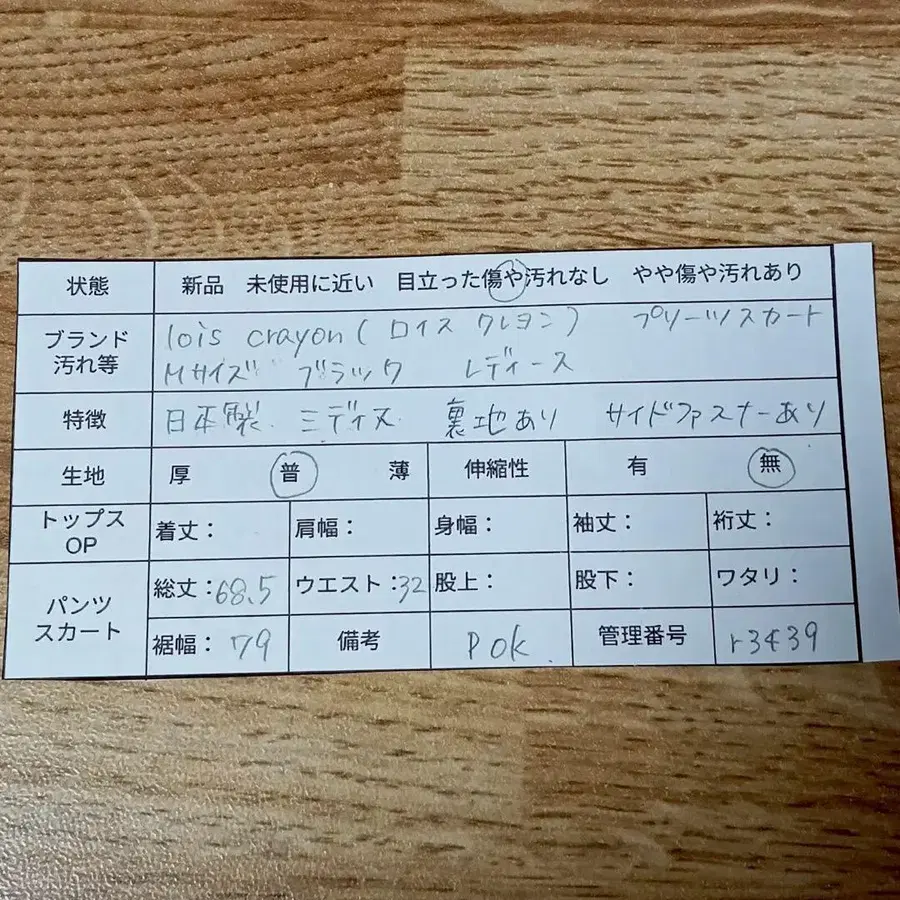 状態 新品 未使用に近い 目立った傷や汚れなし やや傷や汚れあり
ブランド 汚れ等 lois crayon(ロイス クレヨン) プリーツスカート
Mサイズ ブラック レディース
特徴 日本製 ミディ丈 裏地あり サイドファスナーあり
生地 厚 普 薄 伸縮性 有 無
トップス OP 着丈: 肩幅: 身幅: 袖丈: 裄丈:
パンツ スカート 総丈:68.5 ウエスト:32 股上: 股下: ワタリ:
裾幅: 79 備考 Pok. 管理番号 r3439